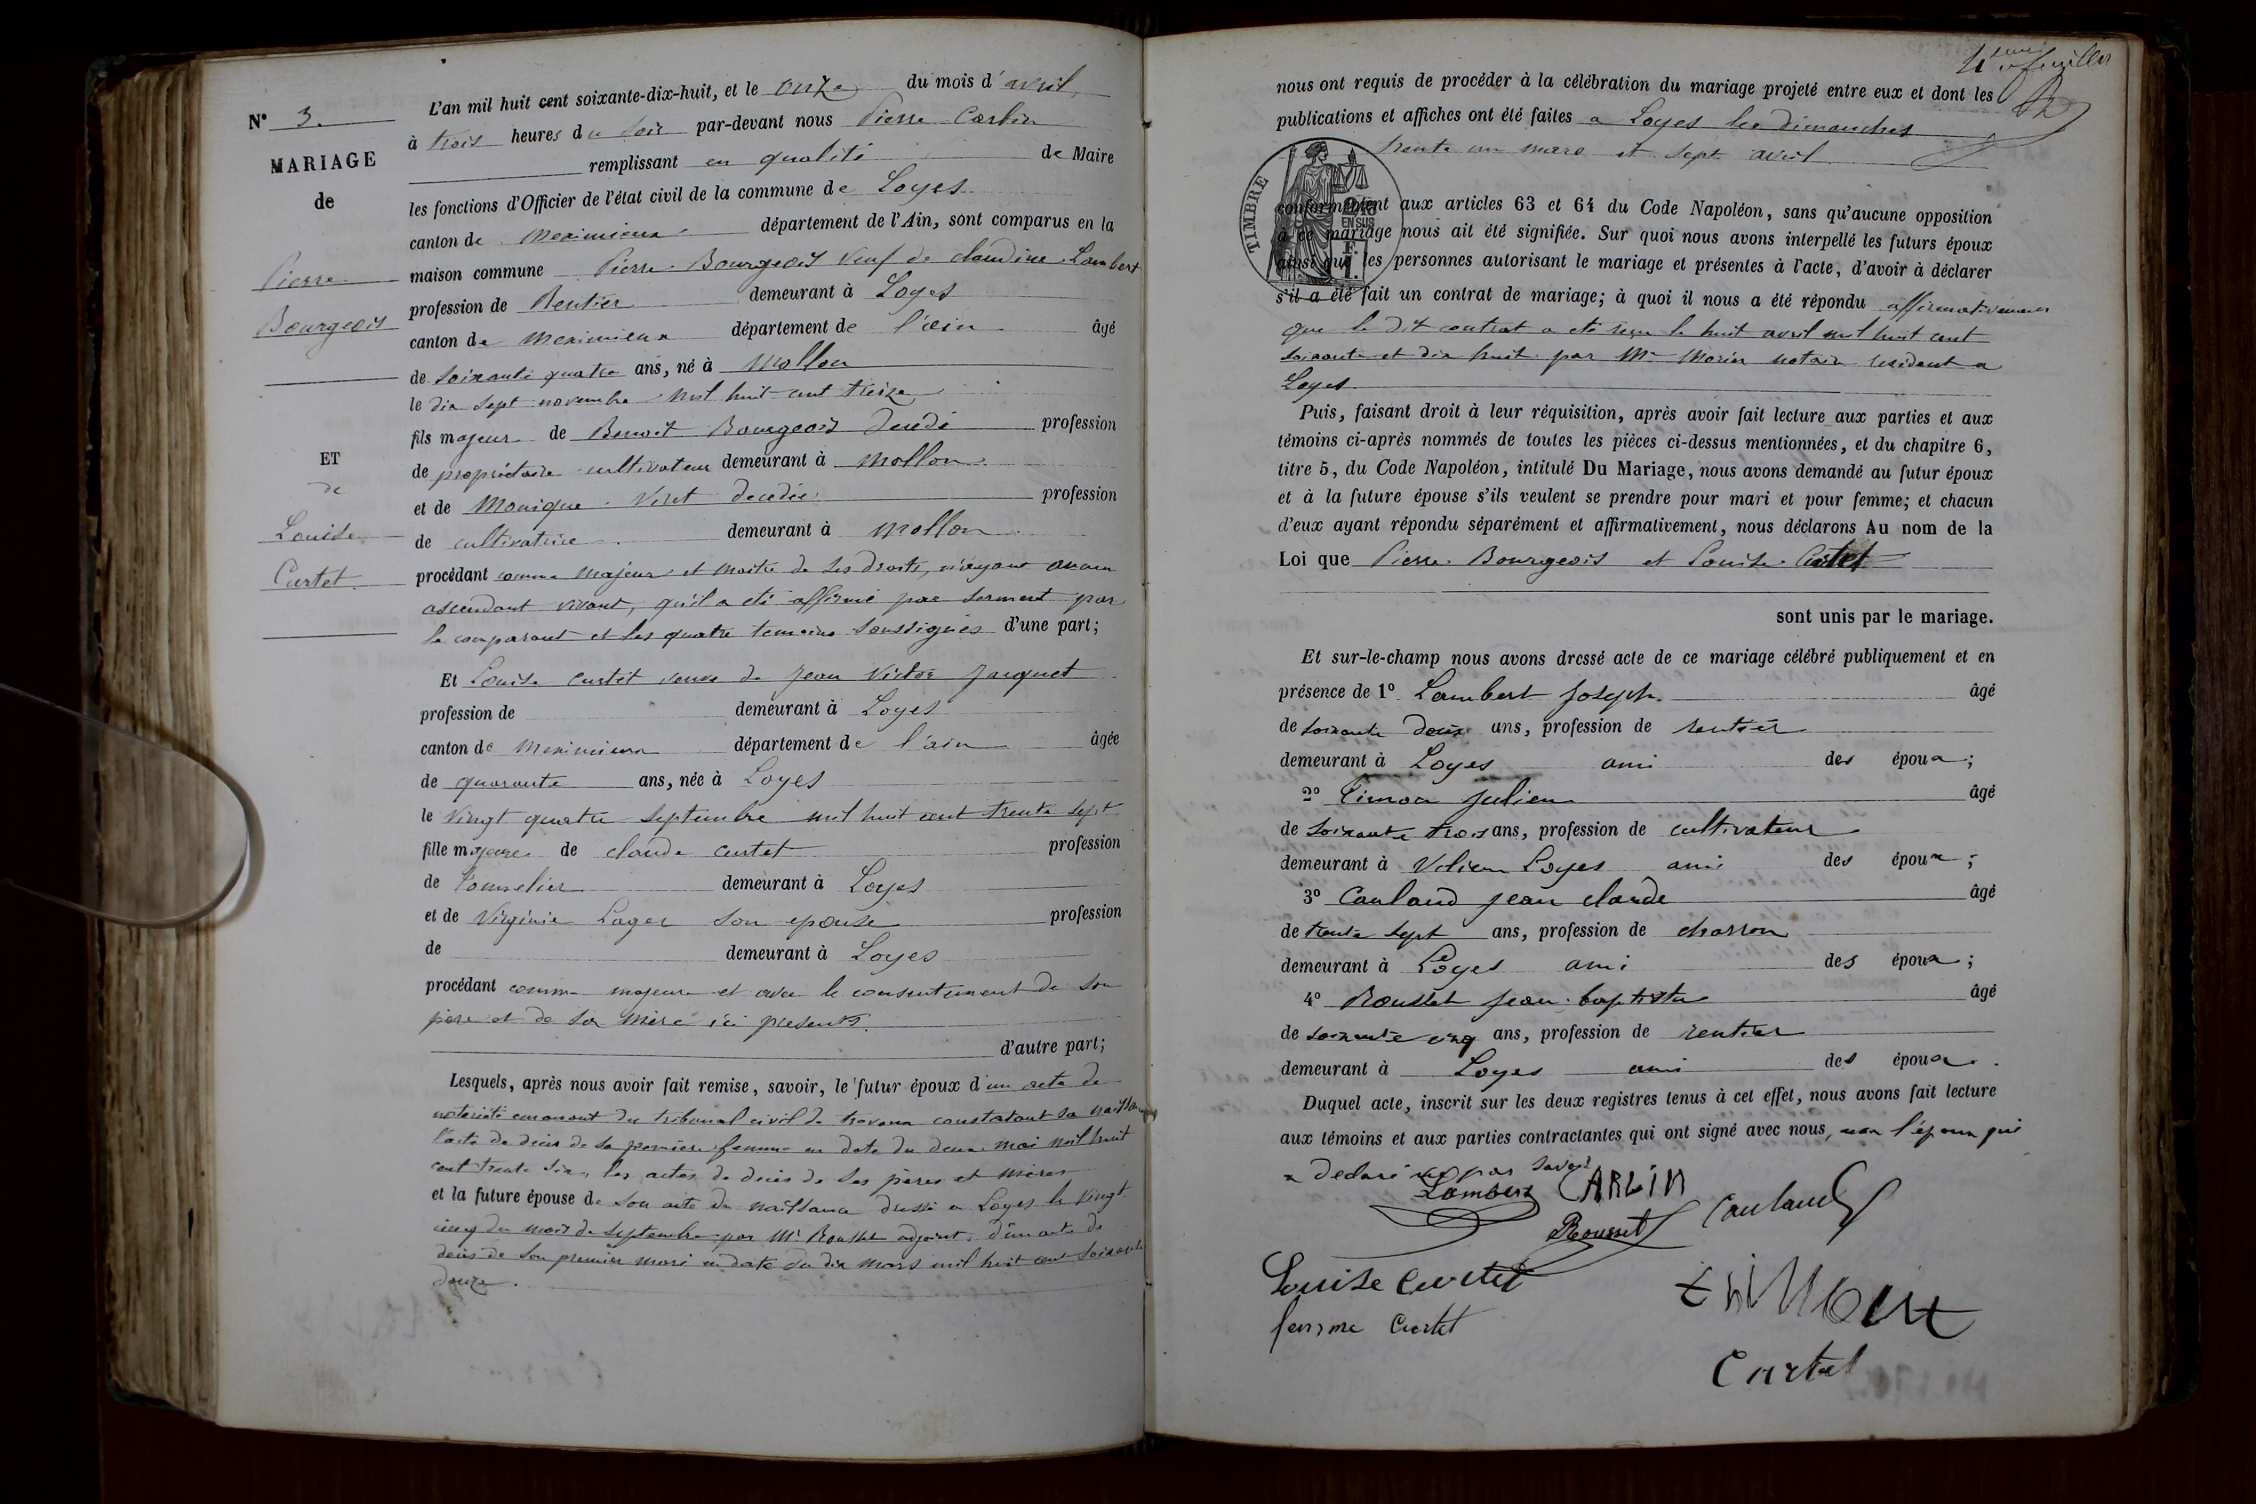 N° 3.
MARIAGE
de
Pierre
Bourgeois
ET
de
Louise
Curtet
L'an mil huit cent soixante-dix-huit, et le onze du mois d'avril,
à trois heures du soir par-devant nous Pierre Carlin
remplissant en qualité de Maire
les fonctions d'Officier de l'état civil de la commune de Loyes
canton de Meximieux département de l'Ain, sont comparus en la
maison commune Pierre Bourgeois veuf de claudine Lambert
profession de Rentier demeurant à Loyes
canton de Meximieux département de l'ain âgé
de soixante quatre ans, né à Mollon
le dix sept novembre mil huit cent treize
fils majeur de Benoit Bourgeois décédé profession
de propriétaire cultivateur demeurant à Mollon
et de Monique Viret décedée profession
de cultivatrice demeurant à Mollon
procédant comme majeur et maitre de ses droits, n'ayant aucun
ascendant vivant, qu'il a été affirmé par serment par
le comparant et les quatre temoins soussignés d'une part;
Et Louise Curtet veuve de Jean Victor Jacquet
profession de demeurant à Loyes
canton de Meximieux département de l'ain âgée
de quarante ans, née à Loyes
le vingt quatre septembre mil huit cent trente sept
fille majeure de claude Curtet profession
de Tonnelier demeurant à Loyes
et de Virginie Lager son epouse profession
de demeurant à Loyes
procédant comme majeure et avec le consentement de son
père et de sa mère ici présents.
d'autre part;
Lesquels, après nous avoir fait remise, savoir, le futur époux d'un acte de
notoriété emanant du tribunal civil de trevoux constatant sa naissance
l'acte de décès de sa première femme en date du deux mai mil huit
cent trente six, les actes de décès de ses pères et mères
et la future épouse de son acte de naissance dressé a Loyes le vingt
cinq du mois de septembre par Mr Rousset adjoint, d'un acte de
décès de son premier mari en date du dix mars mil huit cent soixante
douze.
nous ont requis de procéder à la célébration du mariage projeté entre eux et dont les
publications et affiches ont été faites a Loyes les dimanches
trente un mars et sept avril
TIMBRE
EN SUS
conformément aux articles 63 et 64 du Code Napoléon, sans qu'aucune opposition
à ce mariage nous ait été signifiée. Sur quoi nous avons interpellé les futurs époux
ainsi que les personnes autorisant le mariage et présentes à l'acte, d'avoir à déclarer
s'il a été fait un contrat de mariage; à quoi il nous a été répondu affirmativement
que le dit contrat a été reçu le huit avril mil huit cent
soixante et dix huit par Me Morin notaire résident a
Loyes
Puis, faisant droit à leur réquisition, après avoir fait lecture aux parties et aux
témoins ci-après nommés de toutes les pièces ci-dessus mentionnées, et du chapitre 6,
titre 5, du Code Napoléon, intitulé Du Mariage, nous avons demandé au futur époux
et à la future épouse s'ils veulent se prendre pour mari et pour femme; et chacun
d'eux ayant répondu séparément et affirmativement, nous déclarons Au nom de la
Loi que Pierre Bourgeois et Louise Curtet
sont unis par le mariage.
Et sur-le-champ nous avons dressé acte de ce mariage célébré publiquement et en
présence de 1° Lambert Joseph âgé
de soixante deux ans, profession de rentier
demeurant à Loyes ami des époux;
2° Timon Julien âgé
de soixante trois ans, profession de cultivateur
demeurant à Loyes ami des époux;
3° Cauland Jean Claude âgé
de trente sept ans, profession de charron
demeurant à Loyes ami des époux;
4° Rousset Jean baptiste âgé
de soixante cinq ans, profession de rentier
demeurant à Loyes ami des époux.
Duquel acte, inscrit sur les deux registres tenus à cet effet, nous avons fait lecture
aux témoins et aux parties contractantes qui ont signé avec nous, non l'époux qui
a declaré ne pas savoir
Lambert CARLIN
Rousset Cauland
Louise Curtet
femme Curtet
Curtet